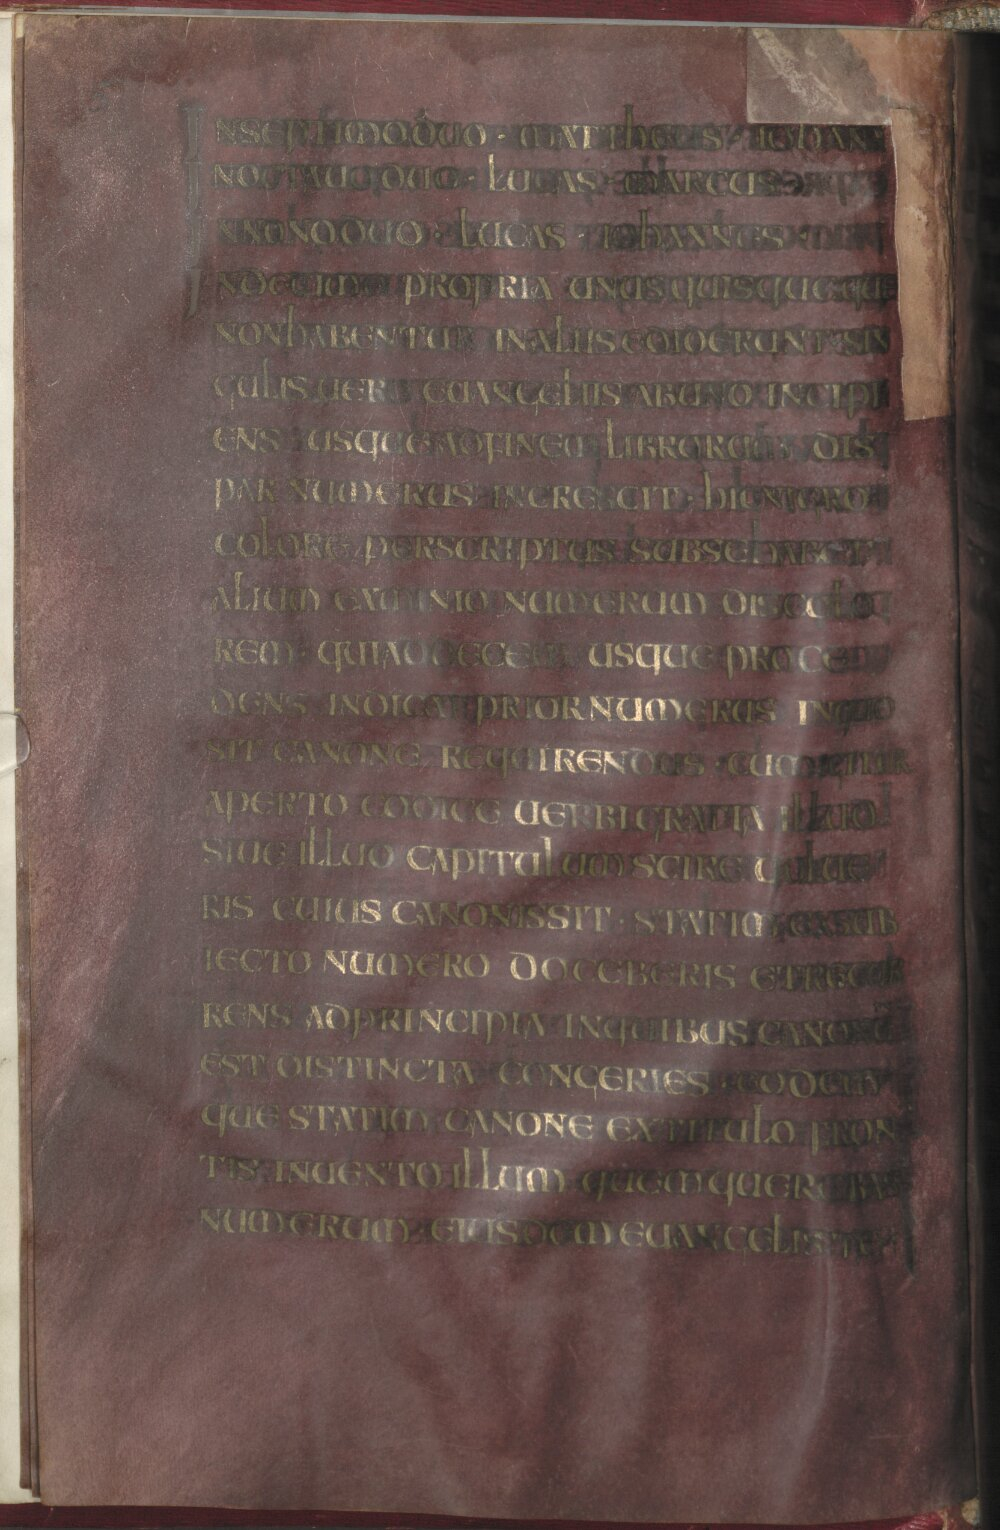 INSEPTIMO DUO · MATTHEUS · IOHAN
INOCTAUO DUO · LUCAS · MARCUS
INNONO DUO · LUCAS · IOHANNES
INDECIMO PROPRIA UNUSQUISQUE QUE
NON HABENTUR IN ALIIS EDIDERUNT · SIN
GULIS UERO EUANGELIIS AB UNO INCIPI
ENS USQUE AD FINEM LIBRORUM DIS
PAR NUMERUS INCRESCIT · HIC NIGRO
COLORE PERSCRIPTUS SUB SE HABET
ALIUM EX MINIO NUMERUM DISCOLO
REM · QUI AD DECEM USQUE PROCE
DENS INDICAT PRIOR NUMERUS IN QUO
SIT CANONE REQUIRENDUS · CUM IGITUR
APERTO CODICE UERBI GRATIA ILLUD
SIUE ILLUD CAPITULUM SCIRE UOLUE
RIS CUIUS CANONIS SIT · STATIM EX SUB
IECTO NUMERO DOCEBERIS ET RECUR
RENS AD PRINCIPIA IN QUIBUS CANONU
EST DISTINCTA CONGERIES EODEM
QUE STATIM CANONE EX TITULO FRON
TIS INUENTO ILLUM QUEM QUEREBAS
NUMERUM · EIUSDEM EUANGELISTE